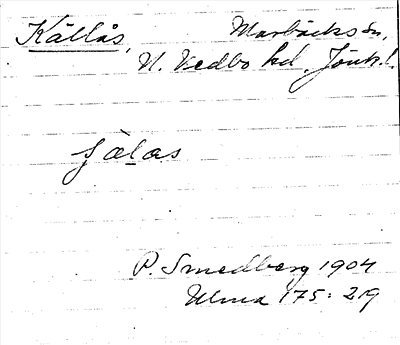 Källås, Marbäcks sn,
N. Vedbo hd, Jönk.l.
ɕälas
P. Smedberg 1904
Ulma 175:219